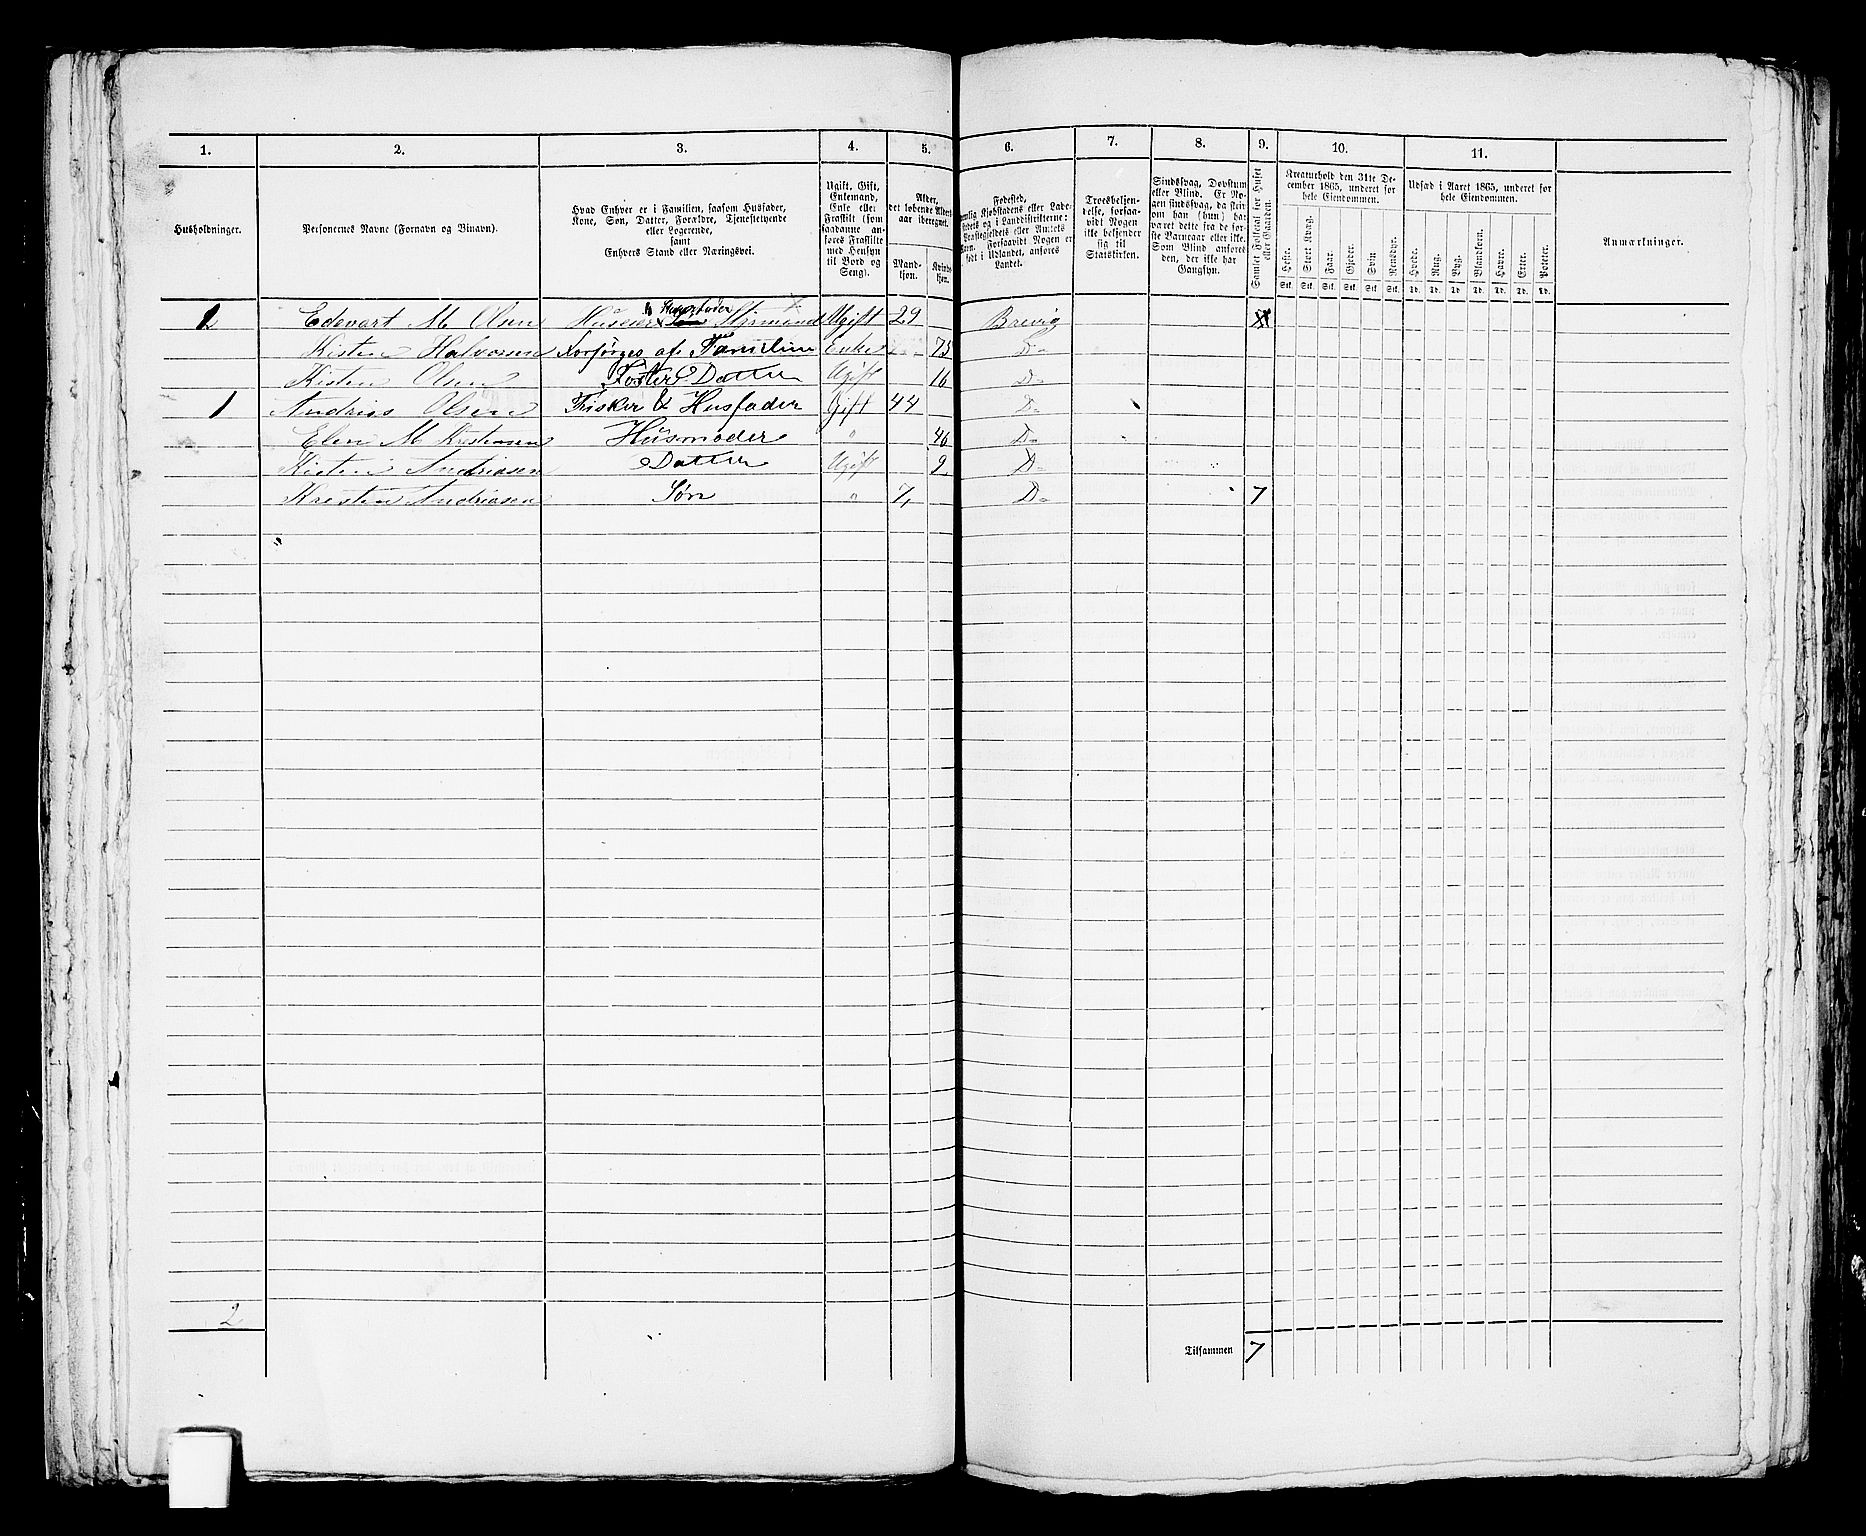 1. 2. 3. 4. 5. 6. 7. 8. 9. 10. 11.
Husholdninger.
Personernes Navne (Fornavn og Binavn).
Hvad Enhver er i Familien, saasom Husfader,
Kone, Søn, Datter, Forældre, Tjenestetyende
eller Logerende,
samt
Enhvers Stand eller Næringsvei.
Ugift, Gift,
Enkemand,
Enke eller
Fraskilt (som
saadanne an-
føres Fraskilte
med Hensyn
til Bord og
Seng).
Alder,
det løbende Alders-
aar iberegnet.
Mand-
kjøn.
Kvind-
kjøn.
Fødested,
Troesbekjen-
delse, forsaa-
vidt Nogen
ikke bekjender
sig til
Statskirken.
Sindssvag, Døvstum
eller Blind. Er No-
gen sindssvag, da skri-
om han (hun) ha-
været dette fra de før-
ste Barneaar eller ikke.
Som Blind anføres
den, der ikke har
Gangsyn.
Samlet Folketal for Huset
eller Gaarden.
Kreaturhold den 31te De-
cember 1865, underet for
hele Eiendommen.
Heste. Stort Kvæg. Faar. Gjeder. Sviin. Rensdyr.
Stk. Stk. Stk. Stk. Stk. Stk.
Udsæd i Aaret 1865, underet for
hele Eiendommen.
Hvede. Rug. Byg. Blandkorn. Havre. Erter. Poteter.
Td. Td. Td. Td. Td. Td. Td.
Anmærkninger.
Husfader
Edevart M Olsen Huseier Styrmand Ugift 29 Brevig
Kisten Halvorsen Forsørges af Familien Enke 75 Do
Kisten Olsen Foster Datter Ugift 16 Do
1 Andrias Olsen Fisker & Husfader Gift 44 Do
Elen M Kristensen Husmoder " 46 Do
Kisten Andriasen Datter Ugift 9 Do
Kresten Andriasen Søn " 7 Do 7
2
Tilsammen 7